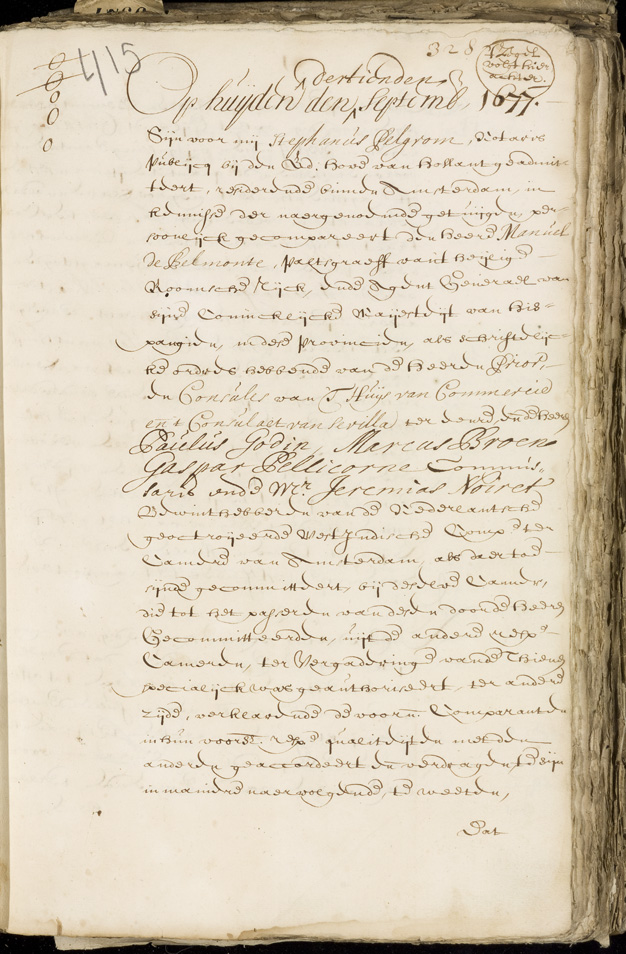 415
328
Zegel
volgt hier
achter.
dertienden
Op huijden den Septemb. 1677.
Sijn voor mij Stephanus Pelgrom, Notaris
publijcq bij den Ed. hove van Hollant geadmit-
teert, residerende binnen Amsterdam, in
kennisse der naergenoemde getuijgen, per-
soonlijck gecompareert den heere Manuel
de Belmonte, paltsgraeff van't heijlige
Roomsche Rijck, ende Agent Generael van
sijne Conincklijcke Majesteijt van His-
pangien, in dese provincien, als schriftelijc-
ke ordres hebbende van de Heeren Prior,
en Consules van 't Huijs van Commercie
en 't Consulaet van Sevilla ter eenre, ende heeren
Paulus Godin, Marcus Broen
Gaspar Pellicorne Commis-
saris ende Mr. Jeremias Noiret
Bewinthebberen van de Nederlantsche
geoctroijeerde West Indische Compe. ter
Camere van Amsterdam, als daer toe
sijnde gecommitteert, bij deselve Camer,
die tot het passeren van desen door de heeren
Gecommitteerden, uijt de andere respe.
Cameren, ter Vergaderinge vande Thienen
specialijck was geauthoriseert, ter andere
zijde, verklarende de voorn. Comparanten
in hun voors. respe. qualiteijten met den
anderen geaccordeert en verdragen te sijn
in maniere naervolgende, te weeten,
Dat